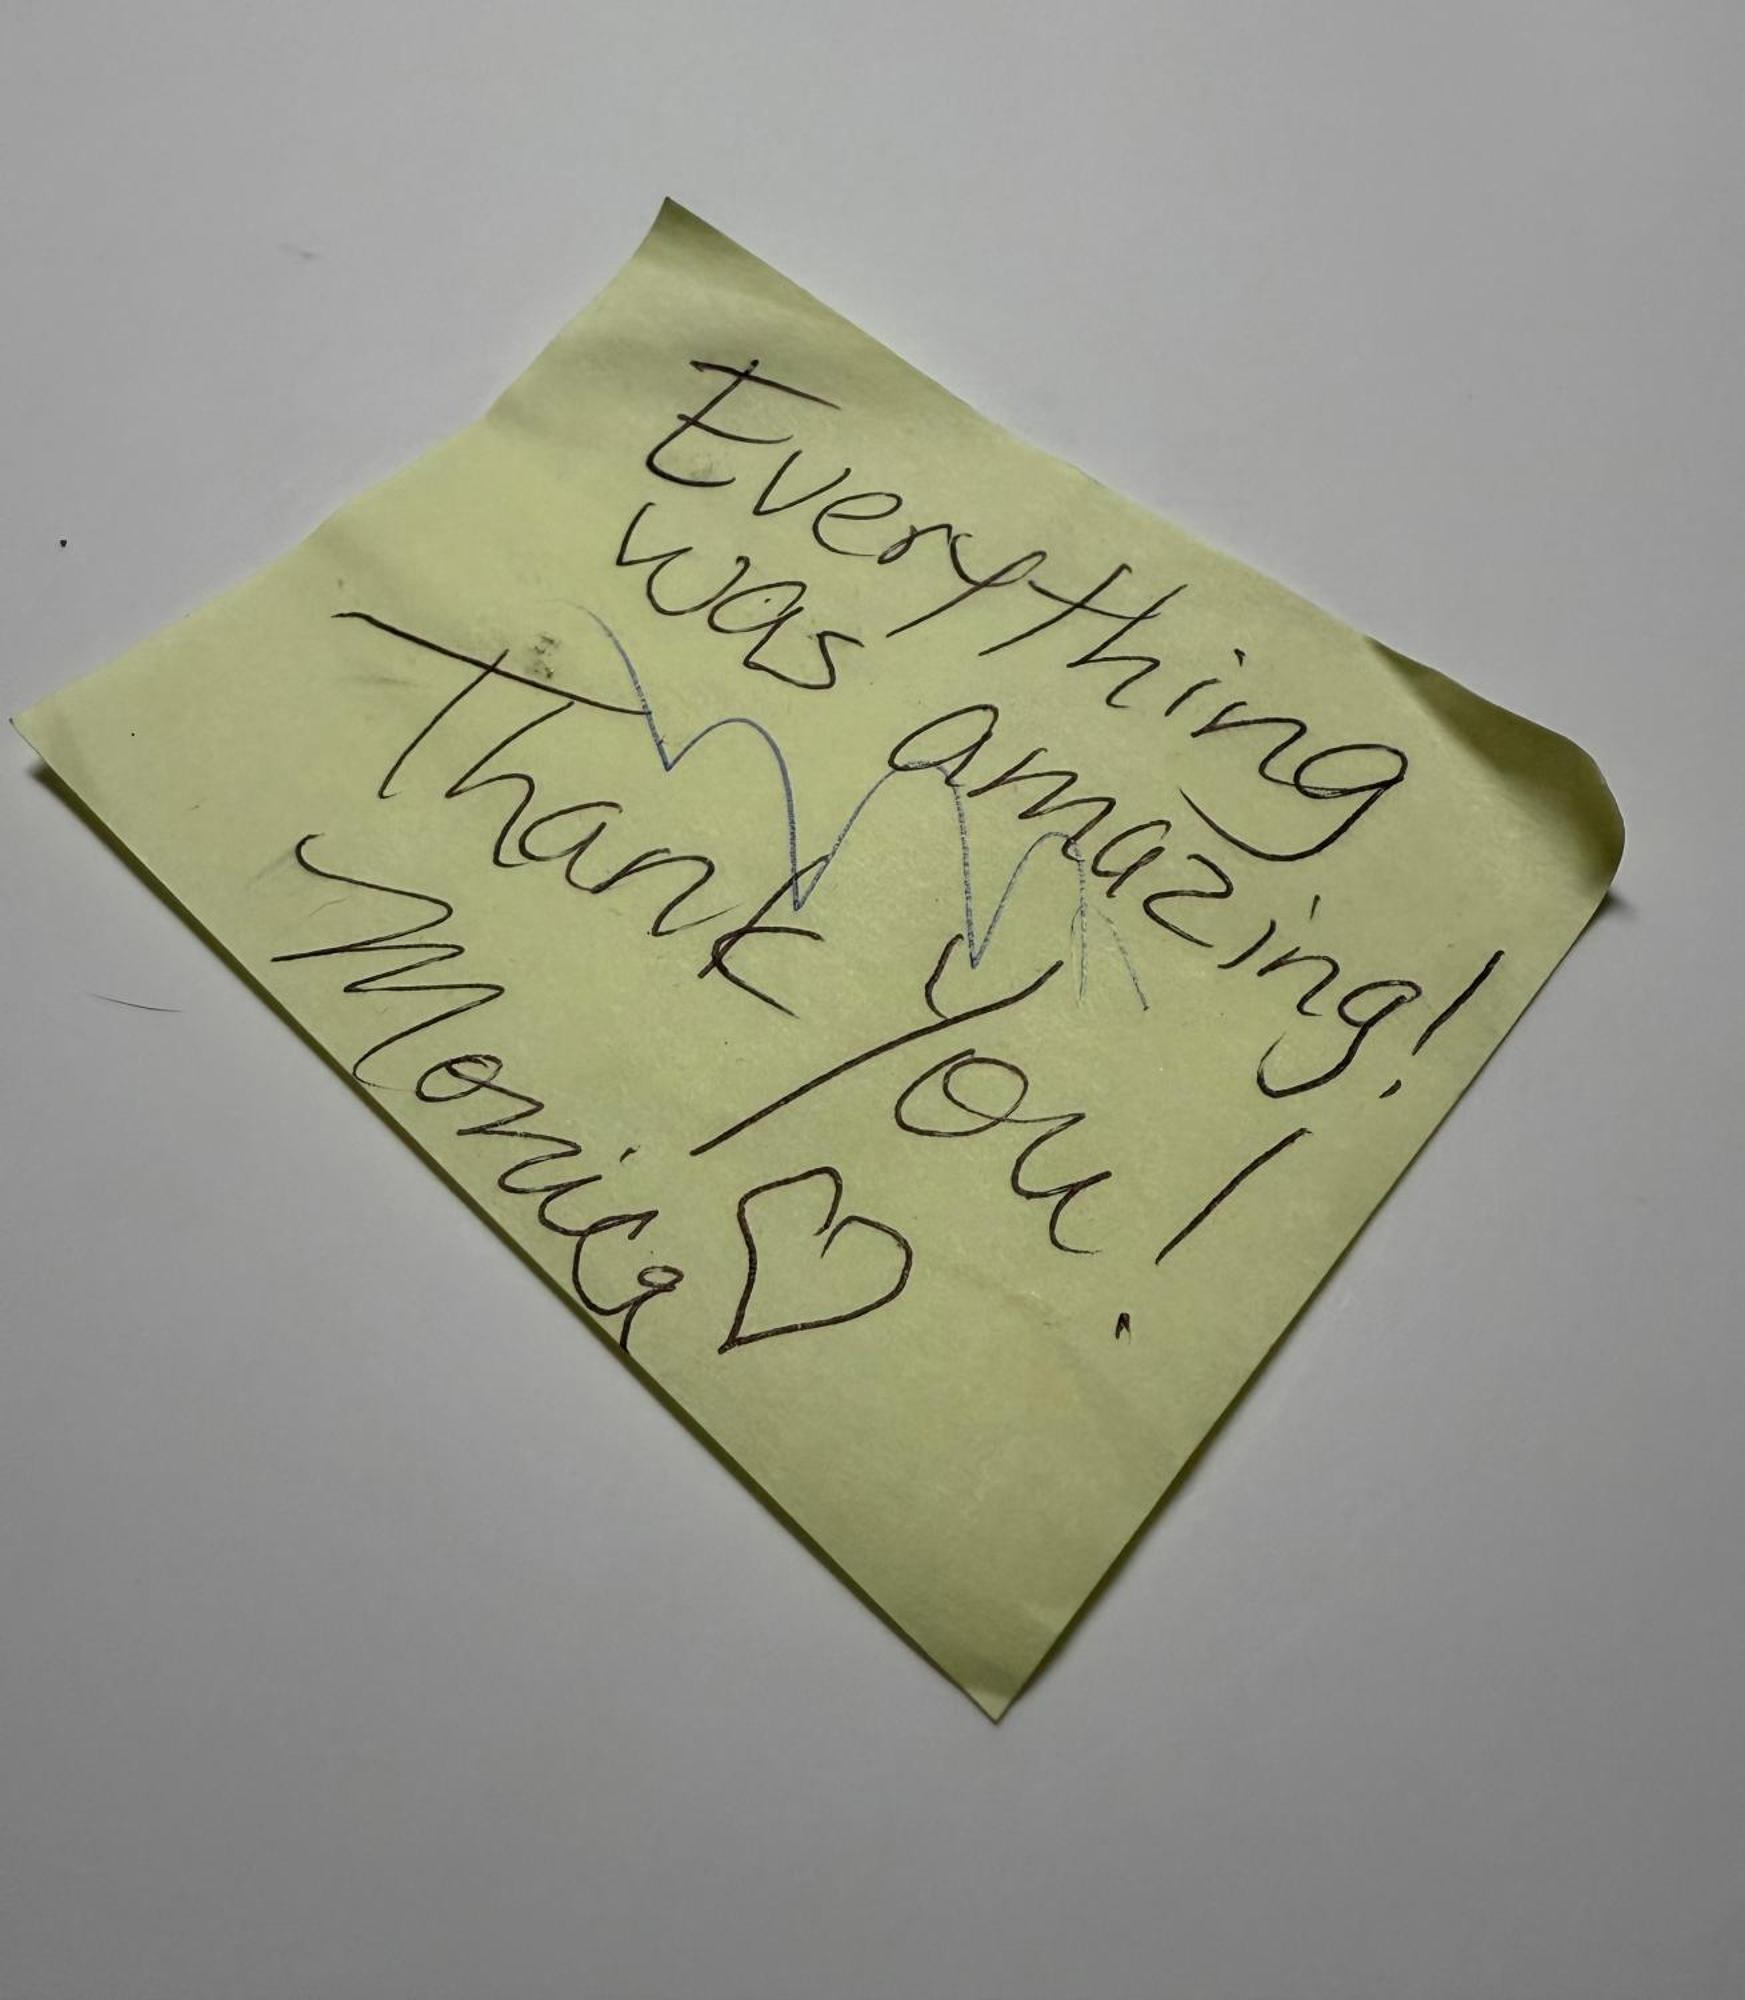 Everything
was amazing!
Thank you!
Monica ♡